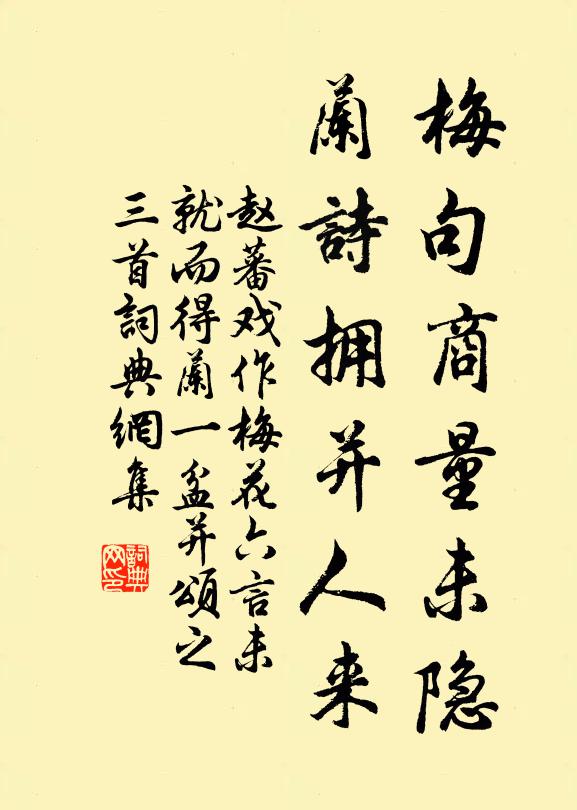 梅句商量未隐
蘭詩拥并人来
赵蕃戏作梅花六言未
就而得蘭一盆并頌之
三首詞典網集
詞典网印